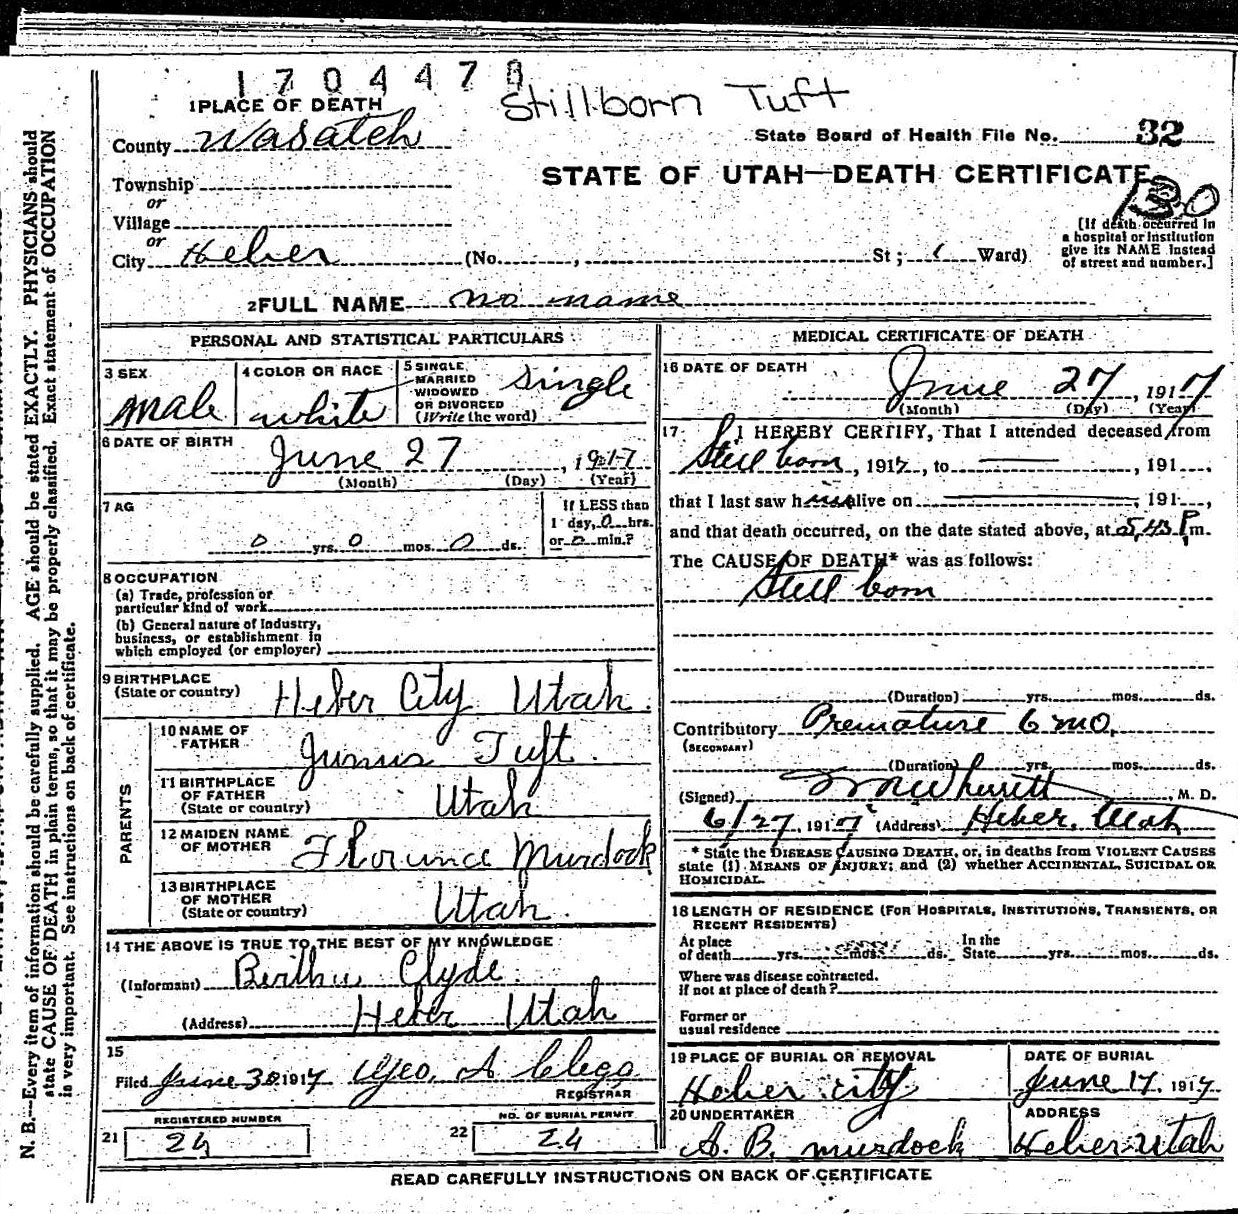 1704478
Stillborn Tuft
1 PLACE OF DEATH
County Wasatch
State Board of Health File No. 32
Township
or
Village
or
City Heber (No. , St; Ward)
STATE OF UTAH—DEATH CERTIFICATE
[If death occurred in
a hospital or institution
give its NAME instead
of street and number.]
2 FULL NAME no name
PERSONAL AND STATISTICAL PARTICULARS
3 SEX
male
4 COLOR OR RACE
white
5 SINGLE,
MARRIED
WIDOWED
OR DIVORCED
(Write the word)
single
6 DATE OF BIRTH
June 27, 1917
(Month) (Day) (Year)
7 AG
0 yrs. 0 mos. 0 ds.
If LESS than
1 day, 0 hrs.
or 0 min.?
8 OCCUPATION
(a) Trade, profession or
particular kind of work
(b) General nature of Industry,
business, or establishment in
which employed (or employer)
9 BIRTHPLACE
(State or country) Heber City Utah.
PARENTS
10 NAME OF
FATHER Junius Tuft.
11 BIRTHPLACE
OF FATHER
(State or country) Utah
12 MAIDEN NAME
OF MOTHER Florunce Murdock
13 BIRTHPLACE
OF MOTHER
(State or country) Utah.
14 THE ABOVE IS TRUE TO THE BEST OF MY KNOWLEDGE
(Informant) Clyde.
(Address) Heber Utah
15
Filed June 30 1917 Geo. A Clegg
REGISTRAR
REGISTERED NUMBER
21 24
NO. OF BURIAL PERMIT
22 24
MEDICAL CERTIFICATE OF DEATH
16 DATE OF DEATH
June 27, 1917
(Month) (Day) (Year)
17 I HEREBY CERTIFY, That I attended deceased from
Still born, 1917, to , 191 ,
that I last saw h alive on , 191 ,
and that death occurred, on the date stated above, at 5,43 P m.
The CAUSE OF DEATH* was as follows:
Still born
(Duration) yrs. mos. ds.
Contributory Premature 6 mo.
(SECONDARY)
(Duration) yrs. mos. ds.
(Signed) , M. D.
6/27, 1917 (Address) Heber, Utah
* State the DISEASE CAUSING DEATH, or, in deaths from VIOLENT CAUSES
state (1) MEANS OF INJURY; and (2) whether ACCIDENTAL, SUICIDAL OR
HOMICIDAL.
18 LENGTH OF RESIDENCE (FOR HOSPITALS, INSTITUTIONS, TRANSIENTS, OR
RECENT RESIDENTS)
At place
of death yrs. mos. ds. In the
State yrs. mos. ds.
Where was disease contracted.
if not at place of death?
Former or
usual residence
19 PLACE OF BURIAL OR REMOVAL
Heber city
DATE OF BURIAL
June 17, 1917
20 UNDERTAKER
A. B. murdock
ADDRESS
Heber utah
READ CAREFULLY INSTRUCTIONS ON BACK OF CERTIFICATE
N. B.—Every item of information should be carefully supplied. AGE should be stated EXACTLY. PHYSICIANS should
state CAUSE OF DEATH in plain terms, so that it may be properly classified. Exact statement of OCCUPATION
is very important. See instructions on back of certificate.